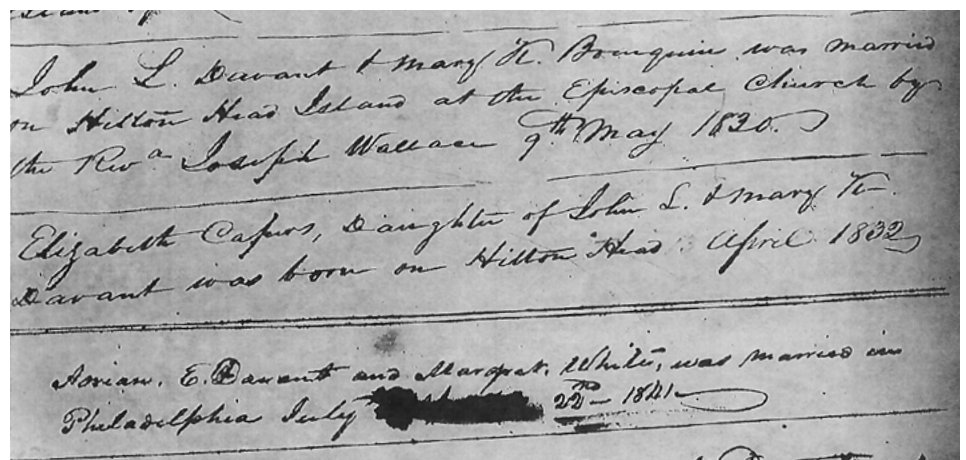 John L. Davant & Mary K. Bourquin was married
on Hilton Head Island at the Episcopal Church by
the Revd Joseph Wallace 9th May 1830.
Elizabeth Capers, Daughter of John L. & Mary K.
Davant was born on Hilton Head April 1832
Adrian. E. Davant and Margret. White, was married in
Philadelphia July 22nd 1841